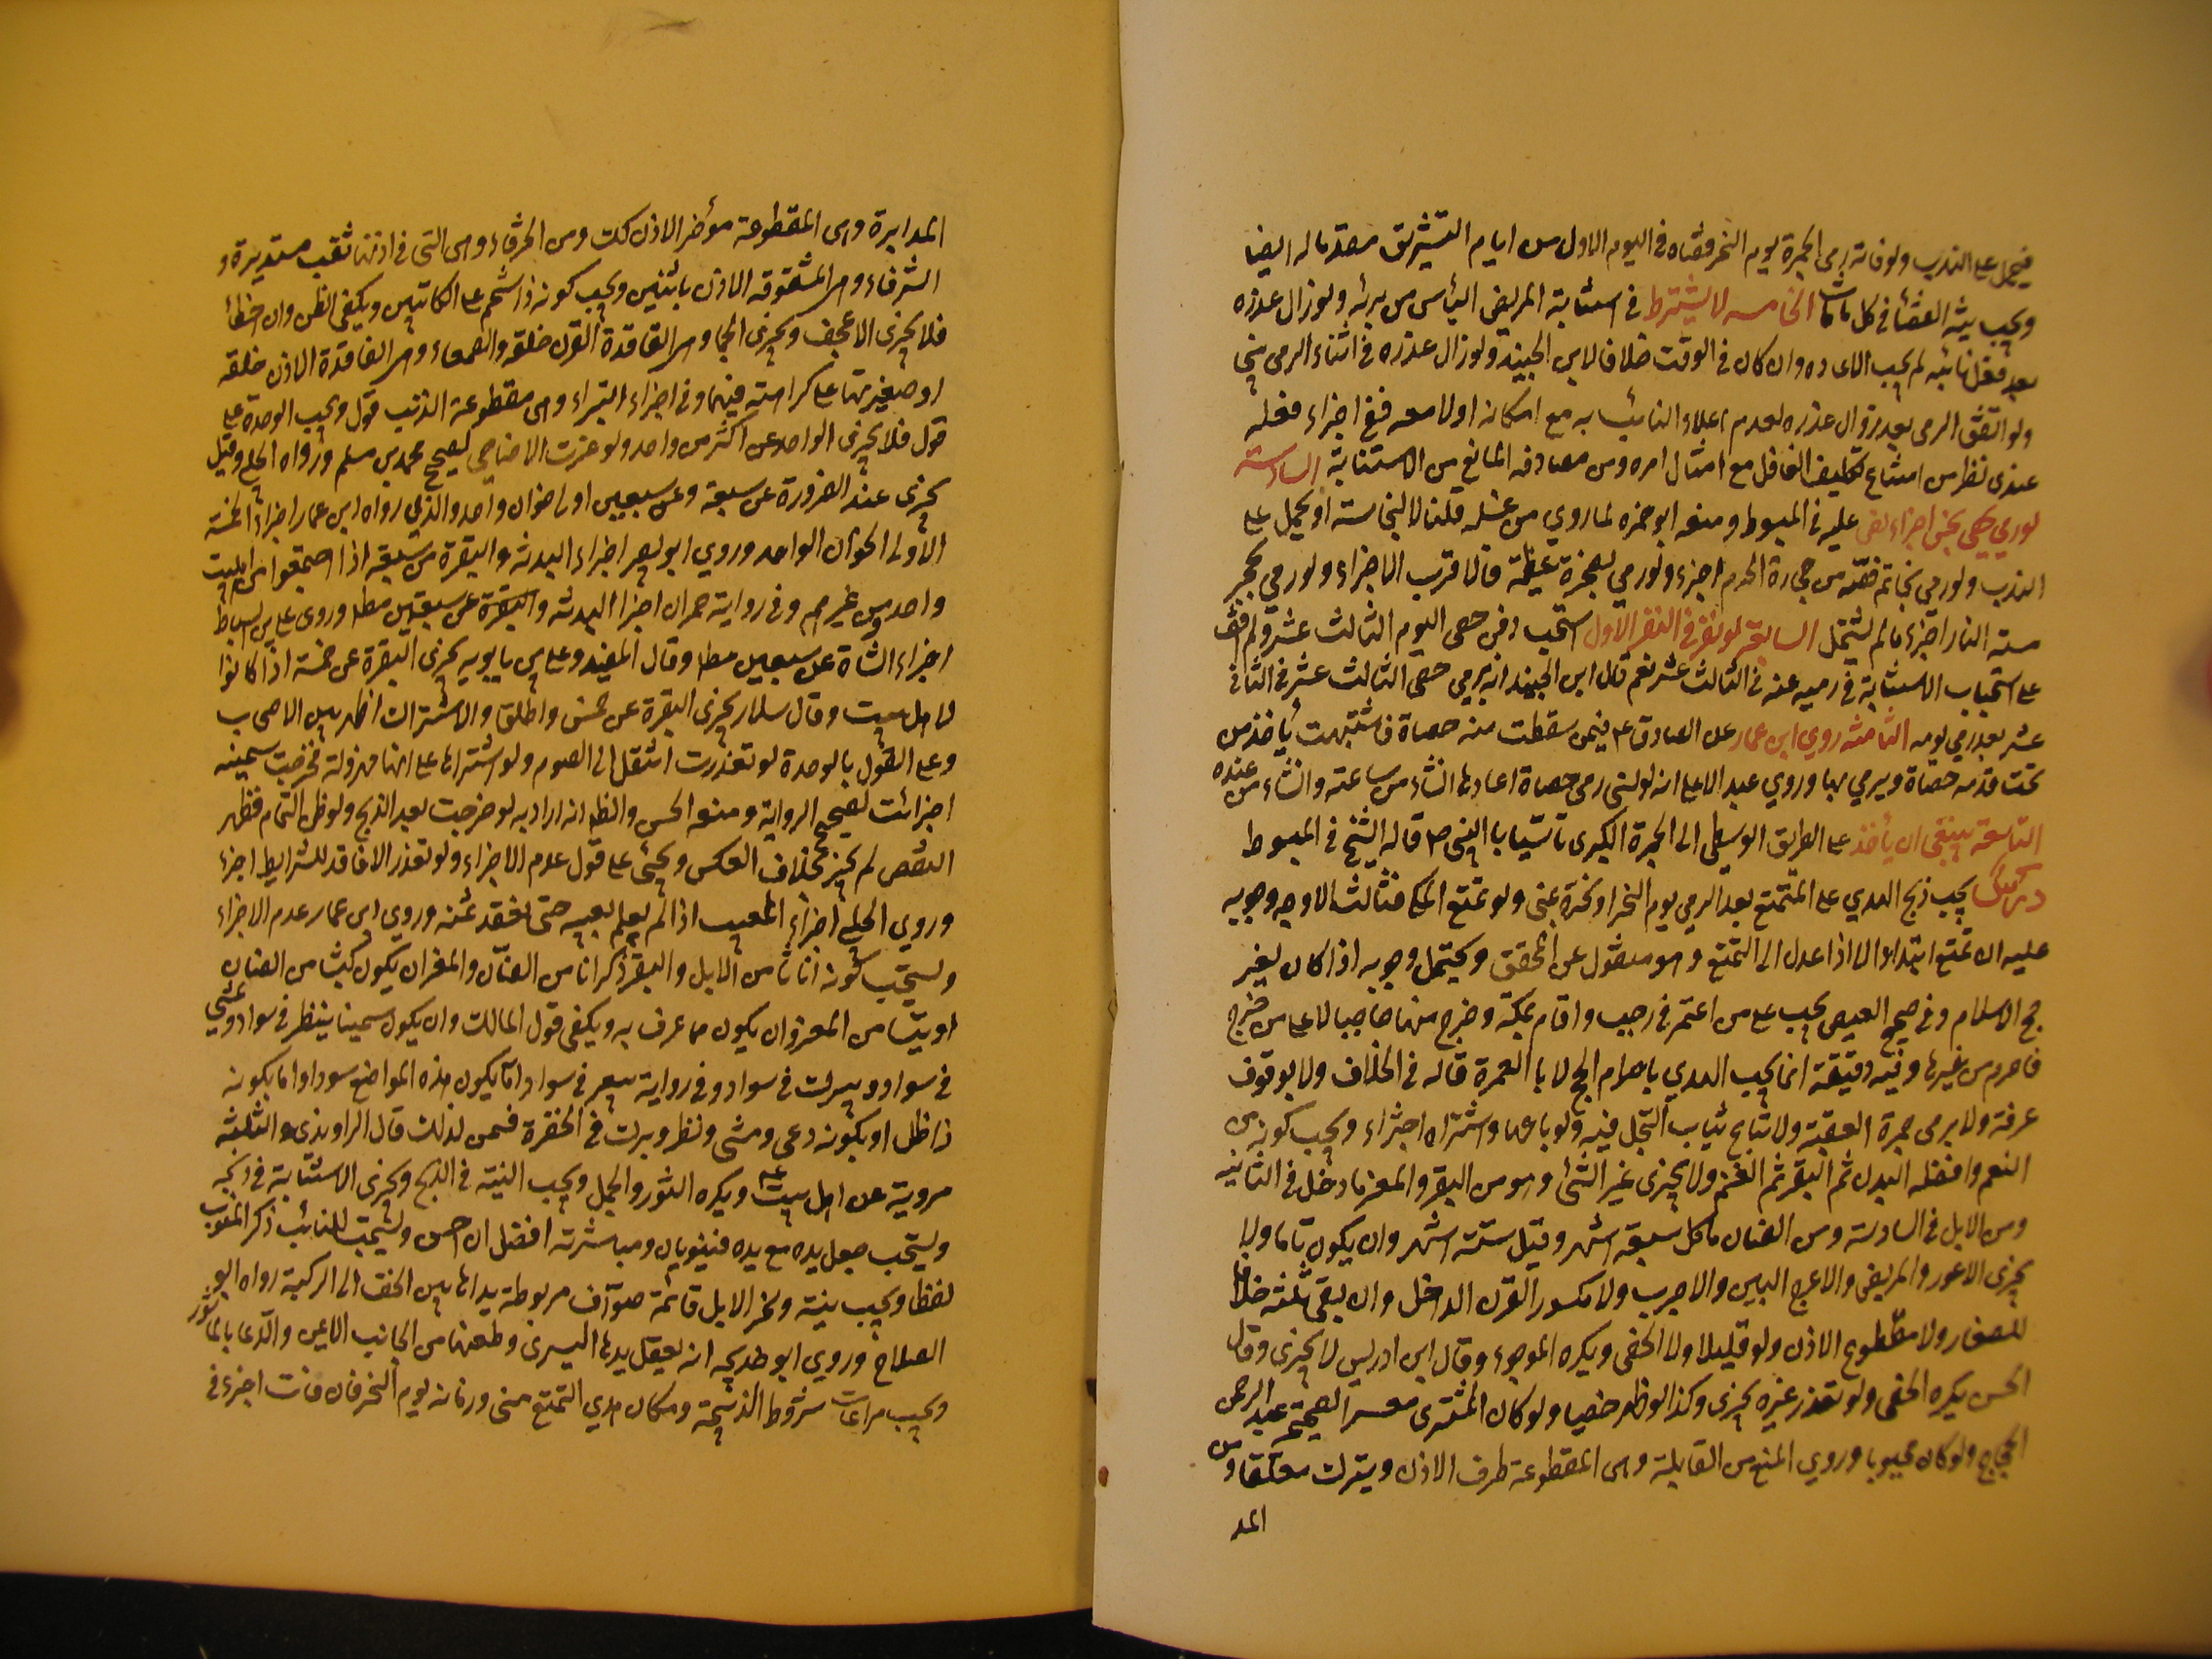 فيحمل على الندب ولو فاته رمى الجمرة يوم النحر قضاه في اليوم الاول من ايام التشريق مقدما له ايضا
ويجب نية القضأ في كل مافات الخامسه لا يشترط في استنابة المريض اليأس من برئه ولو زال عذره
بعد فعل نائبه لم يجب الاعاده وان كان في الوقت خلافا لابن الجنيد ولو زال عذره في اثناء الرمى بنى
ولو اتفق الرمى بعد زوال عذره لعدم اعلام النائب به مع امكانه اولا معه ففي اجزاء فعله
عندى نظر من امتناع تكليف الغافل مع امتثال امره ومن مصادفه المانع من الاستنابة السادسة
لورمي بحصى نجس اجزاء نص عليه في المبسوط ومنعه ابو حمزه لما روي من غسله قلنا لا لنجاسته او يحمل على
الندب ولو رمي بخاتم فصه من حجارة الحرم اجزء ولو رمي بصخرة عظيمة فالاقرب الاجزاء ولو رمي بحجر
مسته النار اجزاء مالم يستحل السابعة لو نفر في النفر الاول استحب دفن حصى اليوم الثالث عشر ولم اقف
على استحباب الاستنابة في رميه عنه في الثالث عشر نعم قال ابن الجنيد انه يرمي حصى الثالث عشر في الثاني
عشر بعد رمي يومه الثامنة روي ابن عمار عن الصادق ع فيمن سقطت منه حصاة فاشتبهت يأخذ من
تحت قدمه حصاة ويرمي بها وروي عبد الاعلى انه لو نسى رمى حصاة اعادها انشاء من ساعته وانشاء من عنده
التاسعة ينبغي ان يأخذ على الطريق الوسطى الى الجمرة الكبرى تأسيا بالنبى ص قاله الشيخ في المبسوط
درس يجب ذبح الهدي على المتمتع بعد الرمي يوم النحر او نحره بمنى ولو تمتع المكي فثالث الاوجه وجوبه
عليه ان تمتع ابتداء لا اذا عدل الى التمتع وهو منقول عن المحقق ويحتمل وجوبه اذا كان لغير
حج الاسلام وفى صحيح العيص يجب على من اعتمر في رجب واقام بمكة وخرج منها حاجا لا على من خرج
فاحرم من غيرها وفيه دقيقة انما يجب الهدي باحرام الحج لا بالعمرة قاله في الخلاف ولا بوقوف
عرفة ولا برمى جمرة العقبة ولا تباع ثياب التجمل فيه ولو باعها واشتراه اجزاء ويجب كونه من
النعم وافضله البدن ثم البقر ثم الغنم ولا يجزى غير الثنى وهو من البقر والمعز ما دخل في الثانيه
ومن الابل في السادسة ومن الضان ماكمل سبعة اشهر وقيل ستة اشهر وان يكون تاما ولا
يجزى الاعور والمريض والاعرج البين والاجرب ولا مكسور القرن الداخل وان بقى ثلثه خلافا
للصفار ولا مقطوع الاذن ولو قليلا ولا الخصى ويكره الموجوء وقال ابن ادريس لا يجزى وقال
الحسن يكره الخصى ولو تعذر غيره يجزى وكذا لو ظهر خصيا ولو كان المشترى معسر الصحيحة عبد الرحمن
الحجاج ولو كان مجبوبا وروي المنع من المقابلة وهى المقطوعة طرف الاذن ويترك معلقا ومن
المد
المدابرة وهى المقطوعة مؤخر الاذن كك ومن الخرقاء وهى التى في اذنها ثقب مستديرة و
الشرقاء وهى المشقوقة الاذن باثنين ويجب كونه ذا شحم على الكليتين ويكفى الظن وان اخطأ
فلا يجزى الاعجف ويجزى الجماء وهى الفاقدة القرن خلقة والصمعاء وهى الفاقدة الاذن خلقه
او صغيرتها على كراهته فيهما وفى اجزاء البتراء وهى مقطوعة الذنب قول ويجب الوحدة على
قول فلا يجزى الواحد عن اكثر من واحد ولو عزت الاضاحي لصحيح محمد بن مسلم ورواه الحلبي وقيل
يجزى عند الضرورة عن سبعة وعن سبعين اولى اخوان واحد والذي رواه ابن عمار اجزاء الخمسة
الاولى الخوان الواحد وروي ابو بصير اجزاء البدنة والبقرة عن سبعة اذا اجتمعوا من اهل بيت
واحد ومن غيرهم وفى رواية حمران اجزاء البدنة والبقرة عن سبعين مطلقا وروى على بن اسباط
اجزاء الشاة عن سبعين مطلقا وقال المفيد وعلى بن بابويه يجزى البقرة عن خمسة اذا كانوا
اهل بيت وقال سلار يجزى البقرة عن خمس واطلق والاشتراك اظهر بين الاصحاب
وعلى القول بالوحدة لو تعذرت انتقل الى الصوم ولو اشتراها على انها مهزولة فخرجت سمينه
اجزائت لصحيح الرواية ومنعه الحسن والظاهر انه اراد به لو خرجت بعد الذبح ولو ظن التمام فظهر
النقص لم يجز بخلاف العكس ويجئ على قول عدم الاجزاء ولو تعذر الا فاقد للشرايط اجزء
وروي الحلبي اجزاء المعيب اذا لم يعلم بعيبه حتى ينقد ثمنه وروي ابن عمار عدم الاجزاء
ويستحب كونه اناثا من الابل والبقر ذكرانا من الضأن والمعز وان يكون كبشا من الضان
او تيسا من المعز وان يكون مما عرف به ويكفى قول المالك وان يكون سمينا ينظر في سواد ويمشي
في سواد ويبرك في سواد وفى رواية يبعر في سواد اما يكون هذه المواضع سودا واما بكونه
ذا ظل او بكونه رعى ومشى ونظر وبرك في الخضرة فسمن لذلك قال الراوندى والثلثة
مروية عن اهل بيت ع ويكره الثور والجمل ويجب النية في الذبح ويجزى الاستنابة في ذبحه
ويستحب جعل يده مع يده فينويان ومباشرته افضل ان احسن ويستحب للنائب ذكر المنوب
لفظا ويجب نية ونحر الابل قائمة صواف مربوطة يداها بين الخف الى الركبة رواه ابو
الصلاح وروي ابو خديجه انه يعقل يدها اليسرى وطعنها من الجانب الايمن والدعا بالمأثور
ويجب مراعات شروط الذبيحة ومكان هدي التمتع منى وزمانه يوم النحر فان فات اجزء في